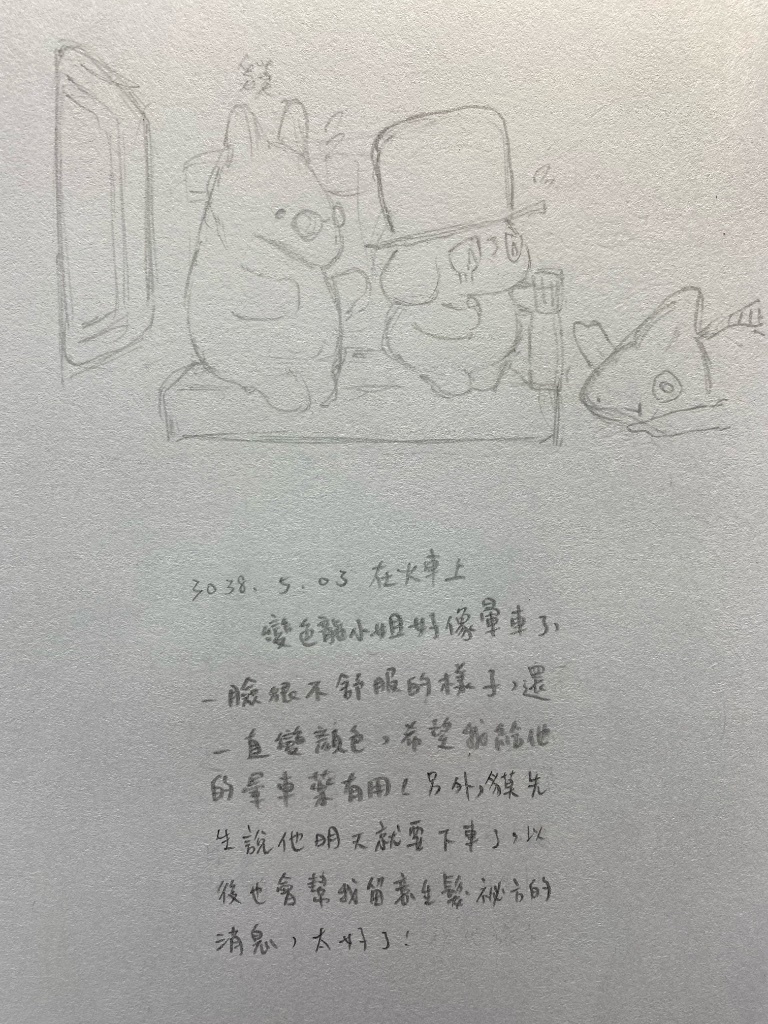 貘
3038. 5. 03 在火車上
變色龍小姐好像暈車了,
一臉很不舒服的樣子,還
一直變顏色,希望我給他
的暈車藥有用!另外,貘先
生說他明天就要下車了,以
後也會幫我留意生髮祕方的
消息,太好了!